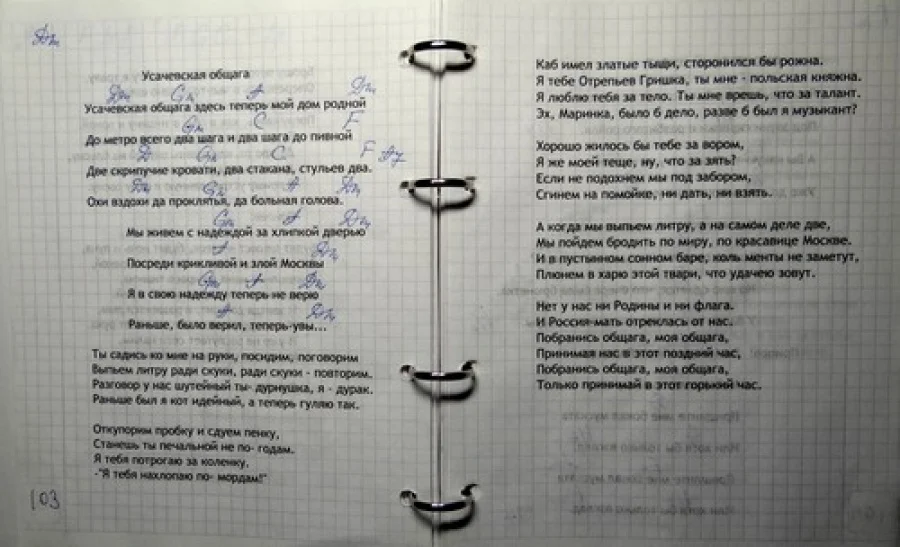 Dm
Усачевская общага
Dm Gm A Dm
Усачевская общага здесь теперь мой дом родной
Gm C F
До метро всего два шага и два шага до пивной
D Gm C F A7
Две скрипучие кровати, два стакана, стульев два.
Dm Gm A Dm
Охи вздохи да проклятья, да больная голова.
Gm A Dm
Мы живем с надеждой за хлипкой дверью
A Dm
Посреди крикливой и злой Москвы
Gm A Dm
Я в свою надежду теперь не верю
A Dm
Раньше, было верил, теперь-увы...
Ты садись ко мне на руки, посидим, поговорим
Выпьем литру ради скуки, ради скуки - повторим.
Разговор у нас шутейный ты- дурнушка, я - дурак.
Раньше был я кот идейный, а теперь гуляю так.
Откупорим пробку и сдуем пенку,
Станешь ты печальной не по- годам.
Я тебя потрогаю за коленку,
-"Я тебя нахлопаю по- мордам!"
103
Каб имел златые тыщи, сторонился бы рожна.
Я тебе Отрепьев Гришка, ты мне - польская княжна.
Я люблю тебя за тело. Ты мне врешь, что за талант.
Эх, Маринка, было б дело, разве б был я музыкант?
Хорошо жилось бы тебе за вором,
Я же моей теще, ну, что за зять?
Если не подохнем мы под забором,
Сгинем на помойке, ни дать, ни взять.
А когда мы выпьем литру, а на самом деле две,
Мы пойдем бродить по миру, по красавице Москве.
И в пустынном сонном баре, коль менты не заметут,
Плюнем в харю этой твари, что удачею зовут.
Нет у нас ни Родины и ни флага.
И Россия-мать отреклась от нас.
Побранись общага, моя общага,
Принимая нас в этот поздний час,
Побранись общага, моя общага,
Только принимай в этот горький час.